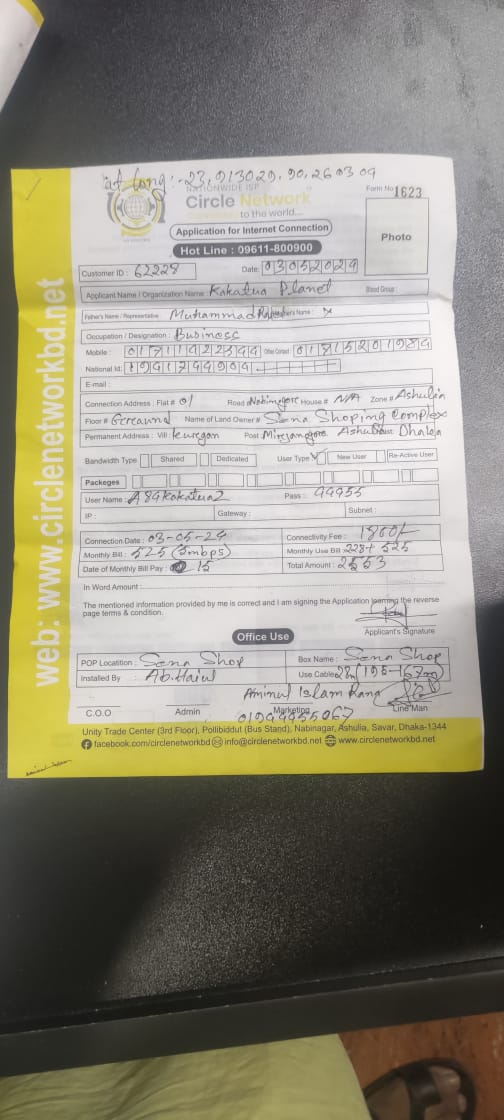 at long :- 23.913029, 90.260309
NATIONWIDE ISP
Circle Network
to the world....
Form No 1623
Application for Internet Connection
Photo
Hot Line : 09611-800900
Customer ID : 62228
Date: 03052024
Applicant Name / Organization Name : Kakatua Planet
Blood Group :
Father's Name / Representative : Muhammad
Occupation / Designation : Business
Mobile :
National Id:
E-mail :
Connection Address : Flat # 01 Road # Nobinagore House # N/A Zone # Ashulia
Floor # Name of Land Owner # Sena Shoping Complex
Permanent Address : Vill: Post Ashulia Dhaka
Bandwidth Type Shared Dedicated User Type New User Re-Active User
Packeges
User Name : A89kakatua2 Pass : 99955
IP : Gateway : Subnet :
Connection Date : 03-05-24 Connectivity Fee : 1800/-
Monthly Bill : 525 (5mbps) Monthly Use Bill 228+ 525
Date of Monthly Bill Pay : 15 Total Amount : 2553
In Word Amount :
The mentioned information provided by me is correct and I am signing the Application learning the reverse
page terms & condition.
Applicant's Signature
Office Use
POP Locatition : Sena Shop Box Name : Sena Shop
Installed By : Use Cable
Aminul Islam Rana
C.O.O Admin Marketing Line Man
01999955067
Unity Trade Center (3rd Floor), Pollibiddut (Bus Stand), Nabinagar, Ashulia, Savar, Dhaka-1344
facebook.com/circlenetworkbd info@circlenetworkbd.net www.circlenetworkbd.net
web: www.circlenetworkbd.net